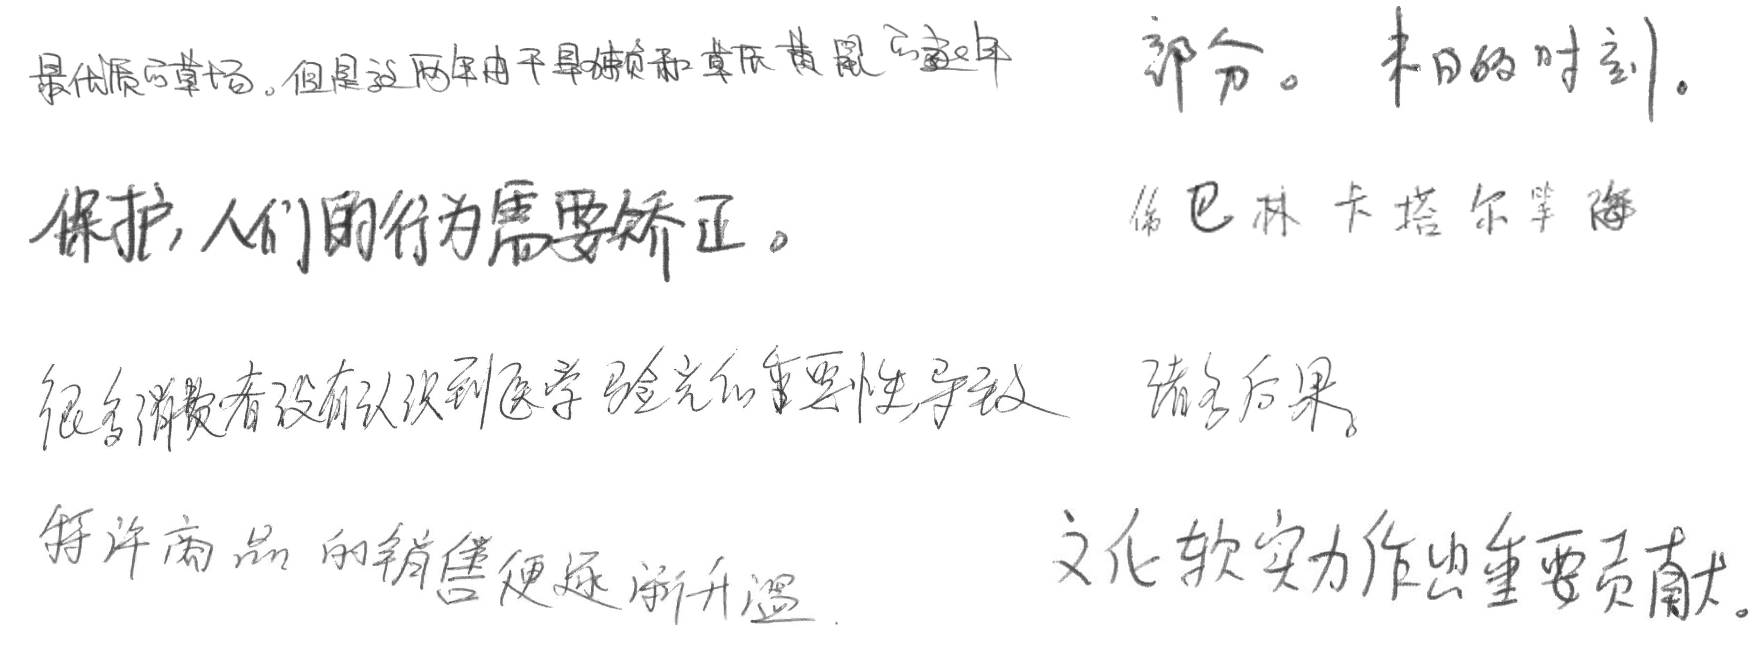 最优质的草场。但是这两年由于旱獭和草原黄鼠的逐年
部分。 末日的时刻。
保护,人们的行为需要矫正。
佛巴林卡塔尔半海
很多消费者没有认识到医学验光的重要性,导致
诸多后果。
特许商品的销售便逐渐升温.
文化软实力作出重要贡献。